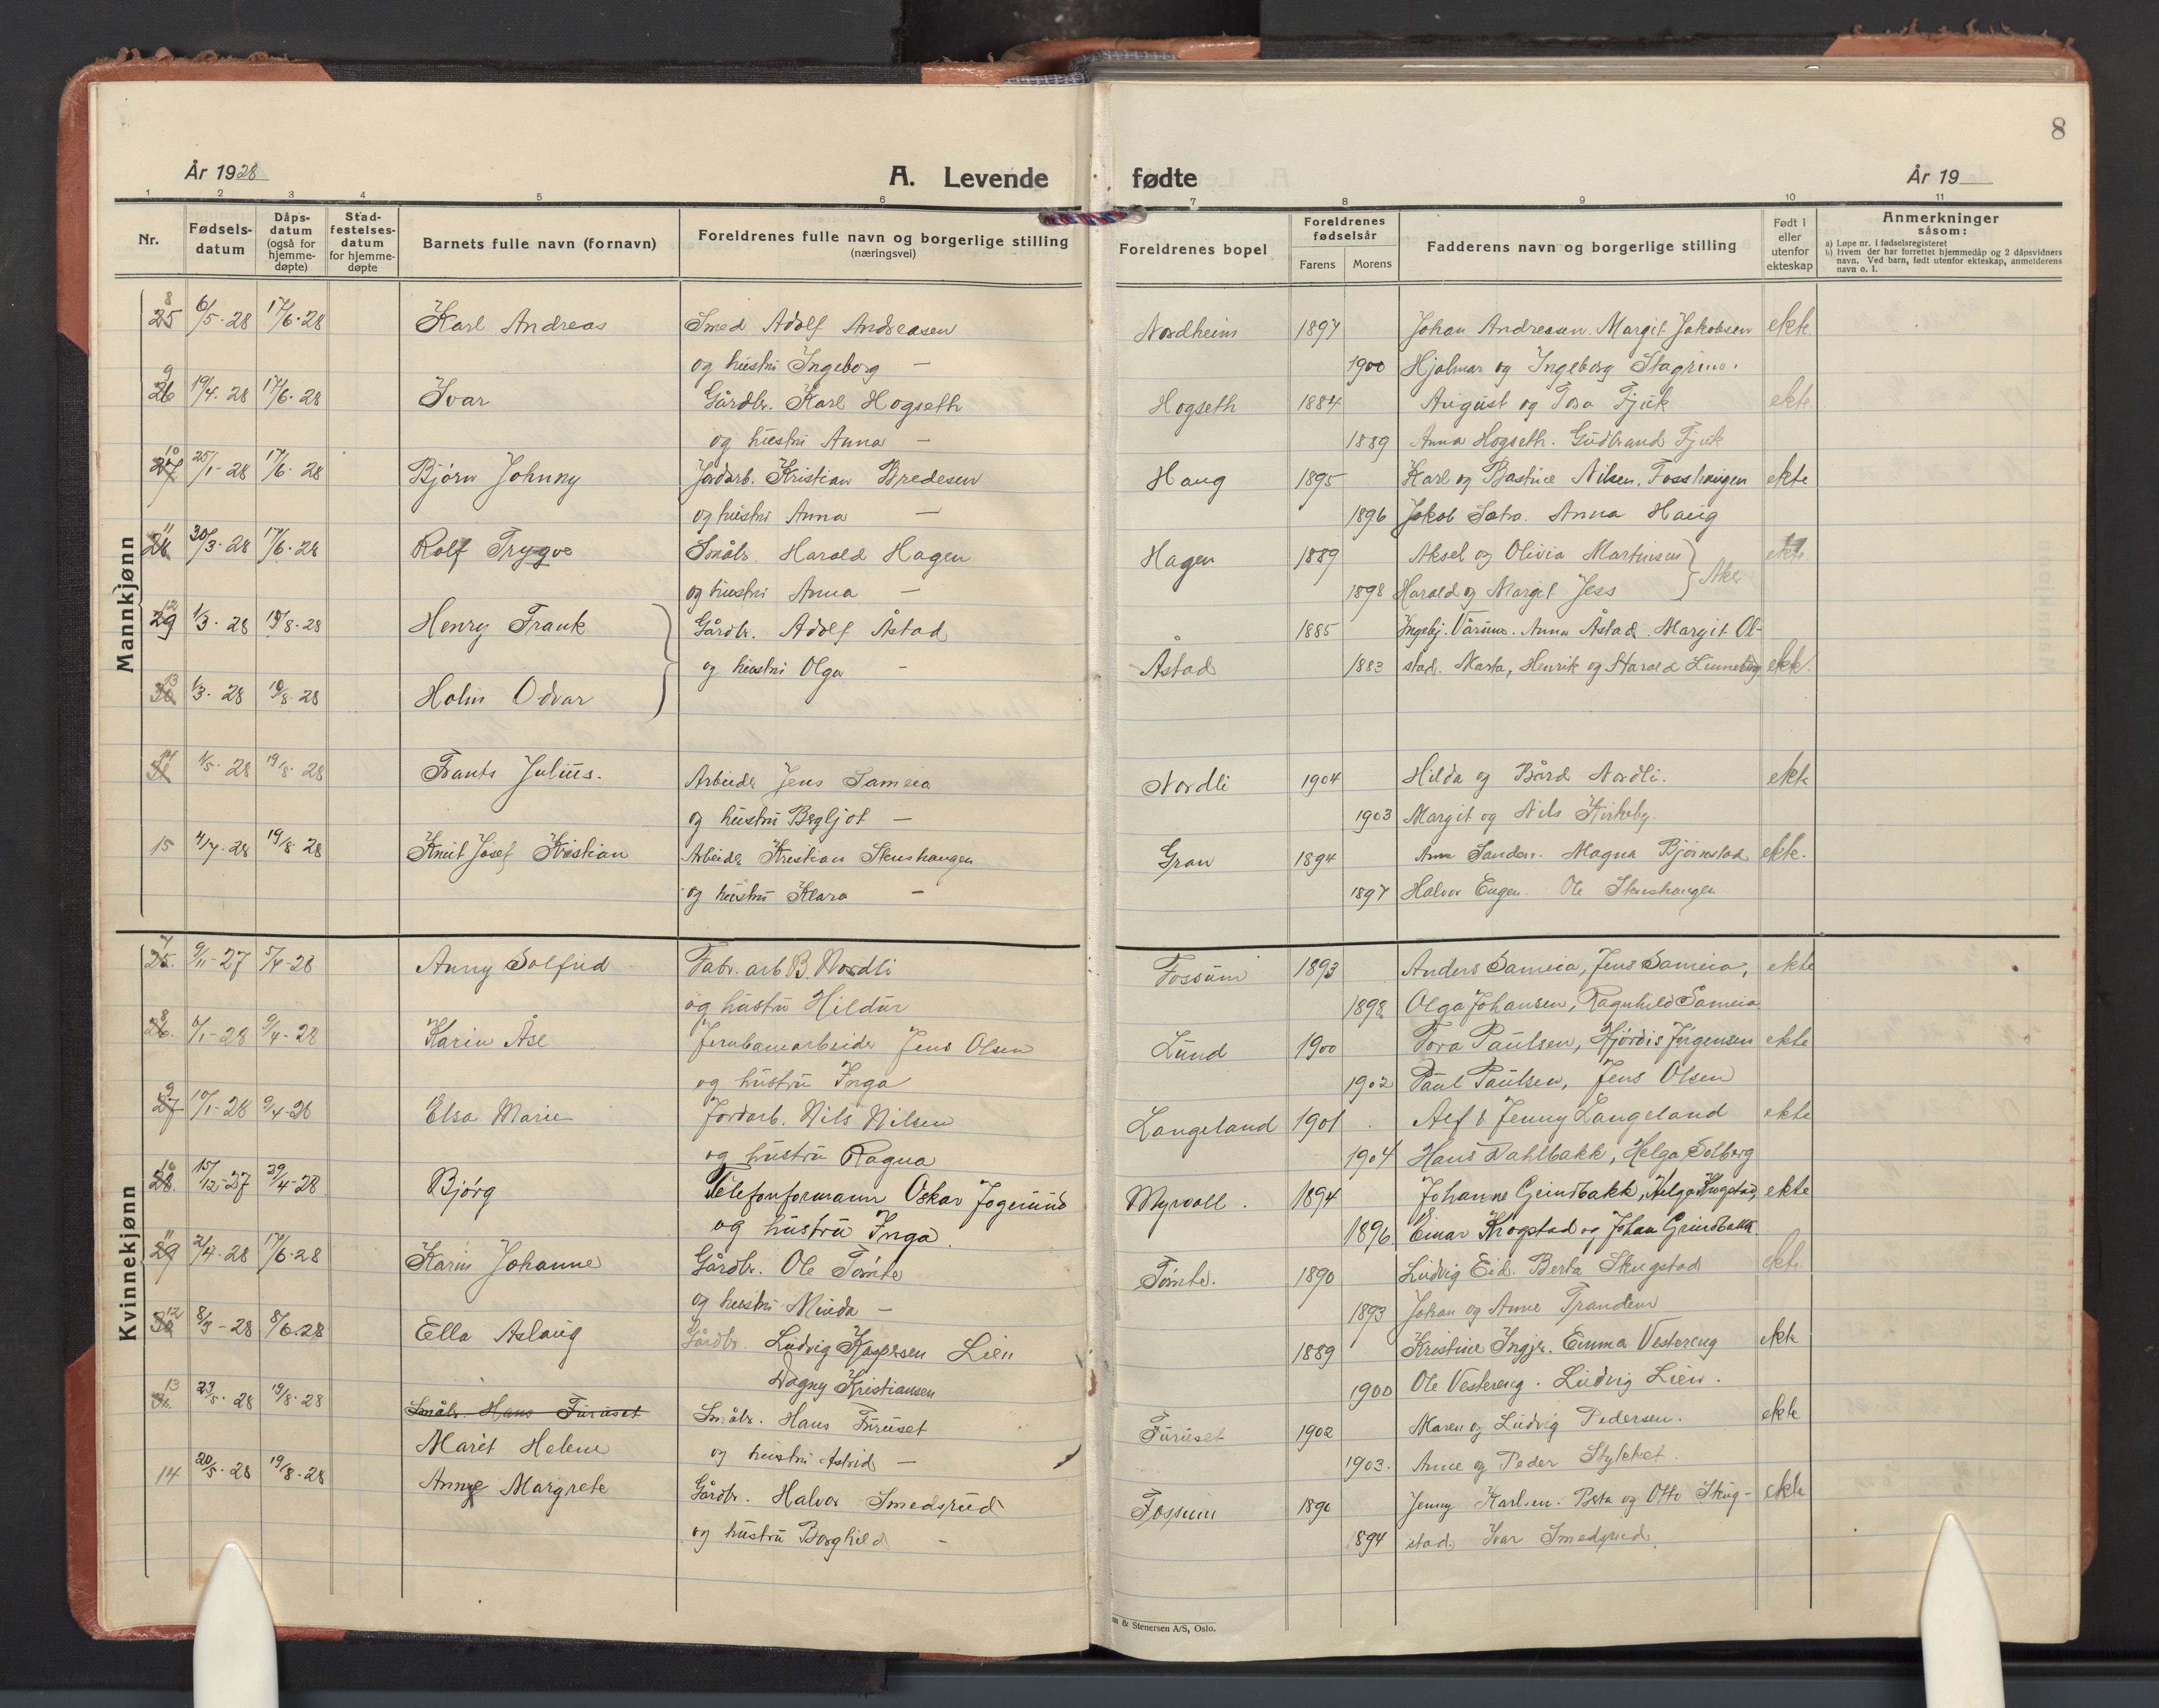 8
År 1928
A. Levende
fødte
År 19
1 2 3 4 5 6 7 8 9 10 11
Nr.
Fødsels-
datum
Dåps-
datum
(også for
hjemme-
døpte)
Stad-
festelses-
datum
for hjemme-
døpte
Barnets fulle navn (fornavn)
Foreldrenes fulle navn og borgerlige stilling
(næringsvei)
Foreldrenes bopel
Foreldrenes
fødselsår
Farens Morens
Fadderens navn og borgerlige stilling
Født i
eller
utenfor
ekteskap
Anmerkninger
såsom:
a) Løpe nr. i fødselsregisteret
b) Hvem der har forrettet hjemmedåp og 2 dåpsvidners
navn. Ved barn, født utenfor ekteskap, anmelderens
navn o. l.
Mannkjønn
8
25 6/5-28 17/6-28 Karl Andreas Smed Adolf Andreasen Nordheim 1897 Johan Andreasen. Margit Jakobsen ekte
og hustru Ingeborg — 1900 Hjalmar og Ingeborg
9
26 19/4.28 17/6-28 Ivar Gårdbr. Karl Hogseth Hogseth 1884 August og Tora Fjuk ekte
og hustru Anna — 1889 Anna Hogseth. Gudbrand Fjuk
10
27 25/1-28 17/6-28 Bjørn Johnny Jordarb. Kristian Bredesen Haug 1895 Karl og Bastine Nilsen, Fosshaugen ekte
og hustru Anna — 1896 Jakob Anna Haug
11
28 30/3-28 17/6-28 Rolf Trygve Småbr. Harald Hagen Hagen 1889 Aksel og Olivia Martinsen } ekte
og hustru Anna — 1898 Harald og Margit Jess } Aker
12
29 1/3-28 19/8-28 Henry Frank } Gårdbr. Adolf Åstad 1885 Ingebj. Anna Åstad. Margit Ol-
og hustru Olga — Åstad 1883 stad. Marta, Henrik og Harald Linneberg ekte
13
30 1/3-28 19/8-28 Holm Odvar
14
31 1/5-28 19/8-28 Frants Julius. Arbeider Jens Sameia Nordli 1904 Hilda og Bård Nordli. ekte
og hustru Bergljot — 1903 Margit og Nils Kirkeby.
15 4/7-28 19/8-28 Knut Josef Kristian Arbeider Kristian Stenshaugen Gran 1894 Sanden. Magna Bjørnstad ekte.
og hustru Klara — 1897 Halvor Engen. Ole Stenshaugen
Kvinnekjønn
7
25. 9/11-27 5/4-28 Anny Solfrid Fabr.arb B. Nordli Fossum 1893 Anders Sameia, Jens Sameia, ekte
og hustru Hildur 1898 Olga Johansen, Ragnhild Sameia.
8
26. 6/1-28 9/4-28 Karin Åse Jernbanearbeider Jens Olsen Lund 1900 Tora Paulsen, Hjørdis Jørgensen ekte
og hustru Inga 1902 Paul Paulsen, Jens Olsen
9
27 10/1-28 9/4-28 Elsa Marie Jordarb. Nils Nilsen Langeland 1901 Alf & Jenny Langeland ekte
og hustru Ragna 1904 Hans Dahlbakk, Helga Solberg
10
28. 15/12-27 29/4-28 Bjørg Telefonformann Oskar Myrvoll. 1894 Johanne Grindbakk, Helga Krogstad, ekte
og hustru Inga. 1896 Einar Krogstad og Johan Grindbakk.
11
29 2/4-28 17/6-28 Karin Johanne Gårdbr. Ole Tømte Tømte. 1890 Ludvig Eid. Berta Skugstad ekte
og hustru Minda — 1893 Johan og Anne Trandem
12
30 8/3-28 8/6.28 Ella Aslaug Gårdbr. Ludvig Kaspersen Lien 1889 Kristine Ingjer. Emma Vestereng ekte
Dagny Kristiansen 1900 Ole Vestereng. Ludvig Lien.
13
31. 23/5-28 19/8-28 Småbr. Hans Furuset Småbr. Hans Furuset Furuset 1902 Maren og Ludvig Pedersen. ekte
Marit Helene og hustru Astrid — 1903. Anne og Peder Stykket.
14 20/5-28 19/8-28 Anny Margrete Gårdbr. Halvor Smedsrud Fossum 1890 Jenny Karlsen. Berta og Otto Skug- ekte
og hustru Borghild — 1894 stad. Ivar Smedsrud.
& Stenersen A/S, Oslo.